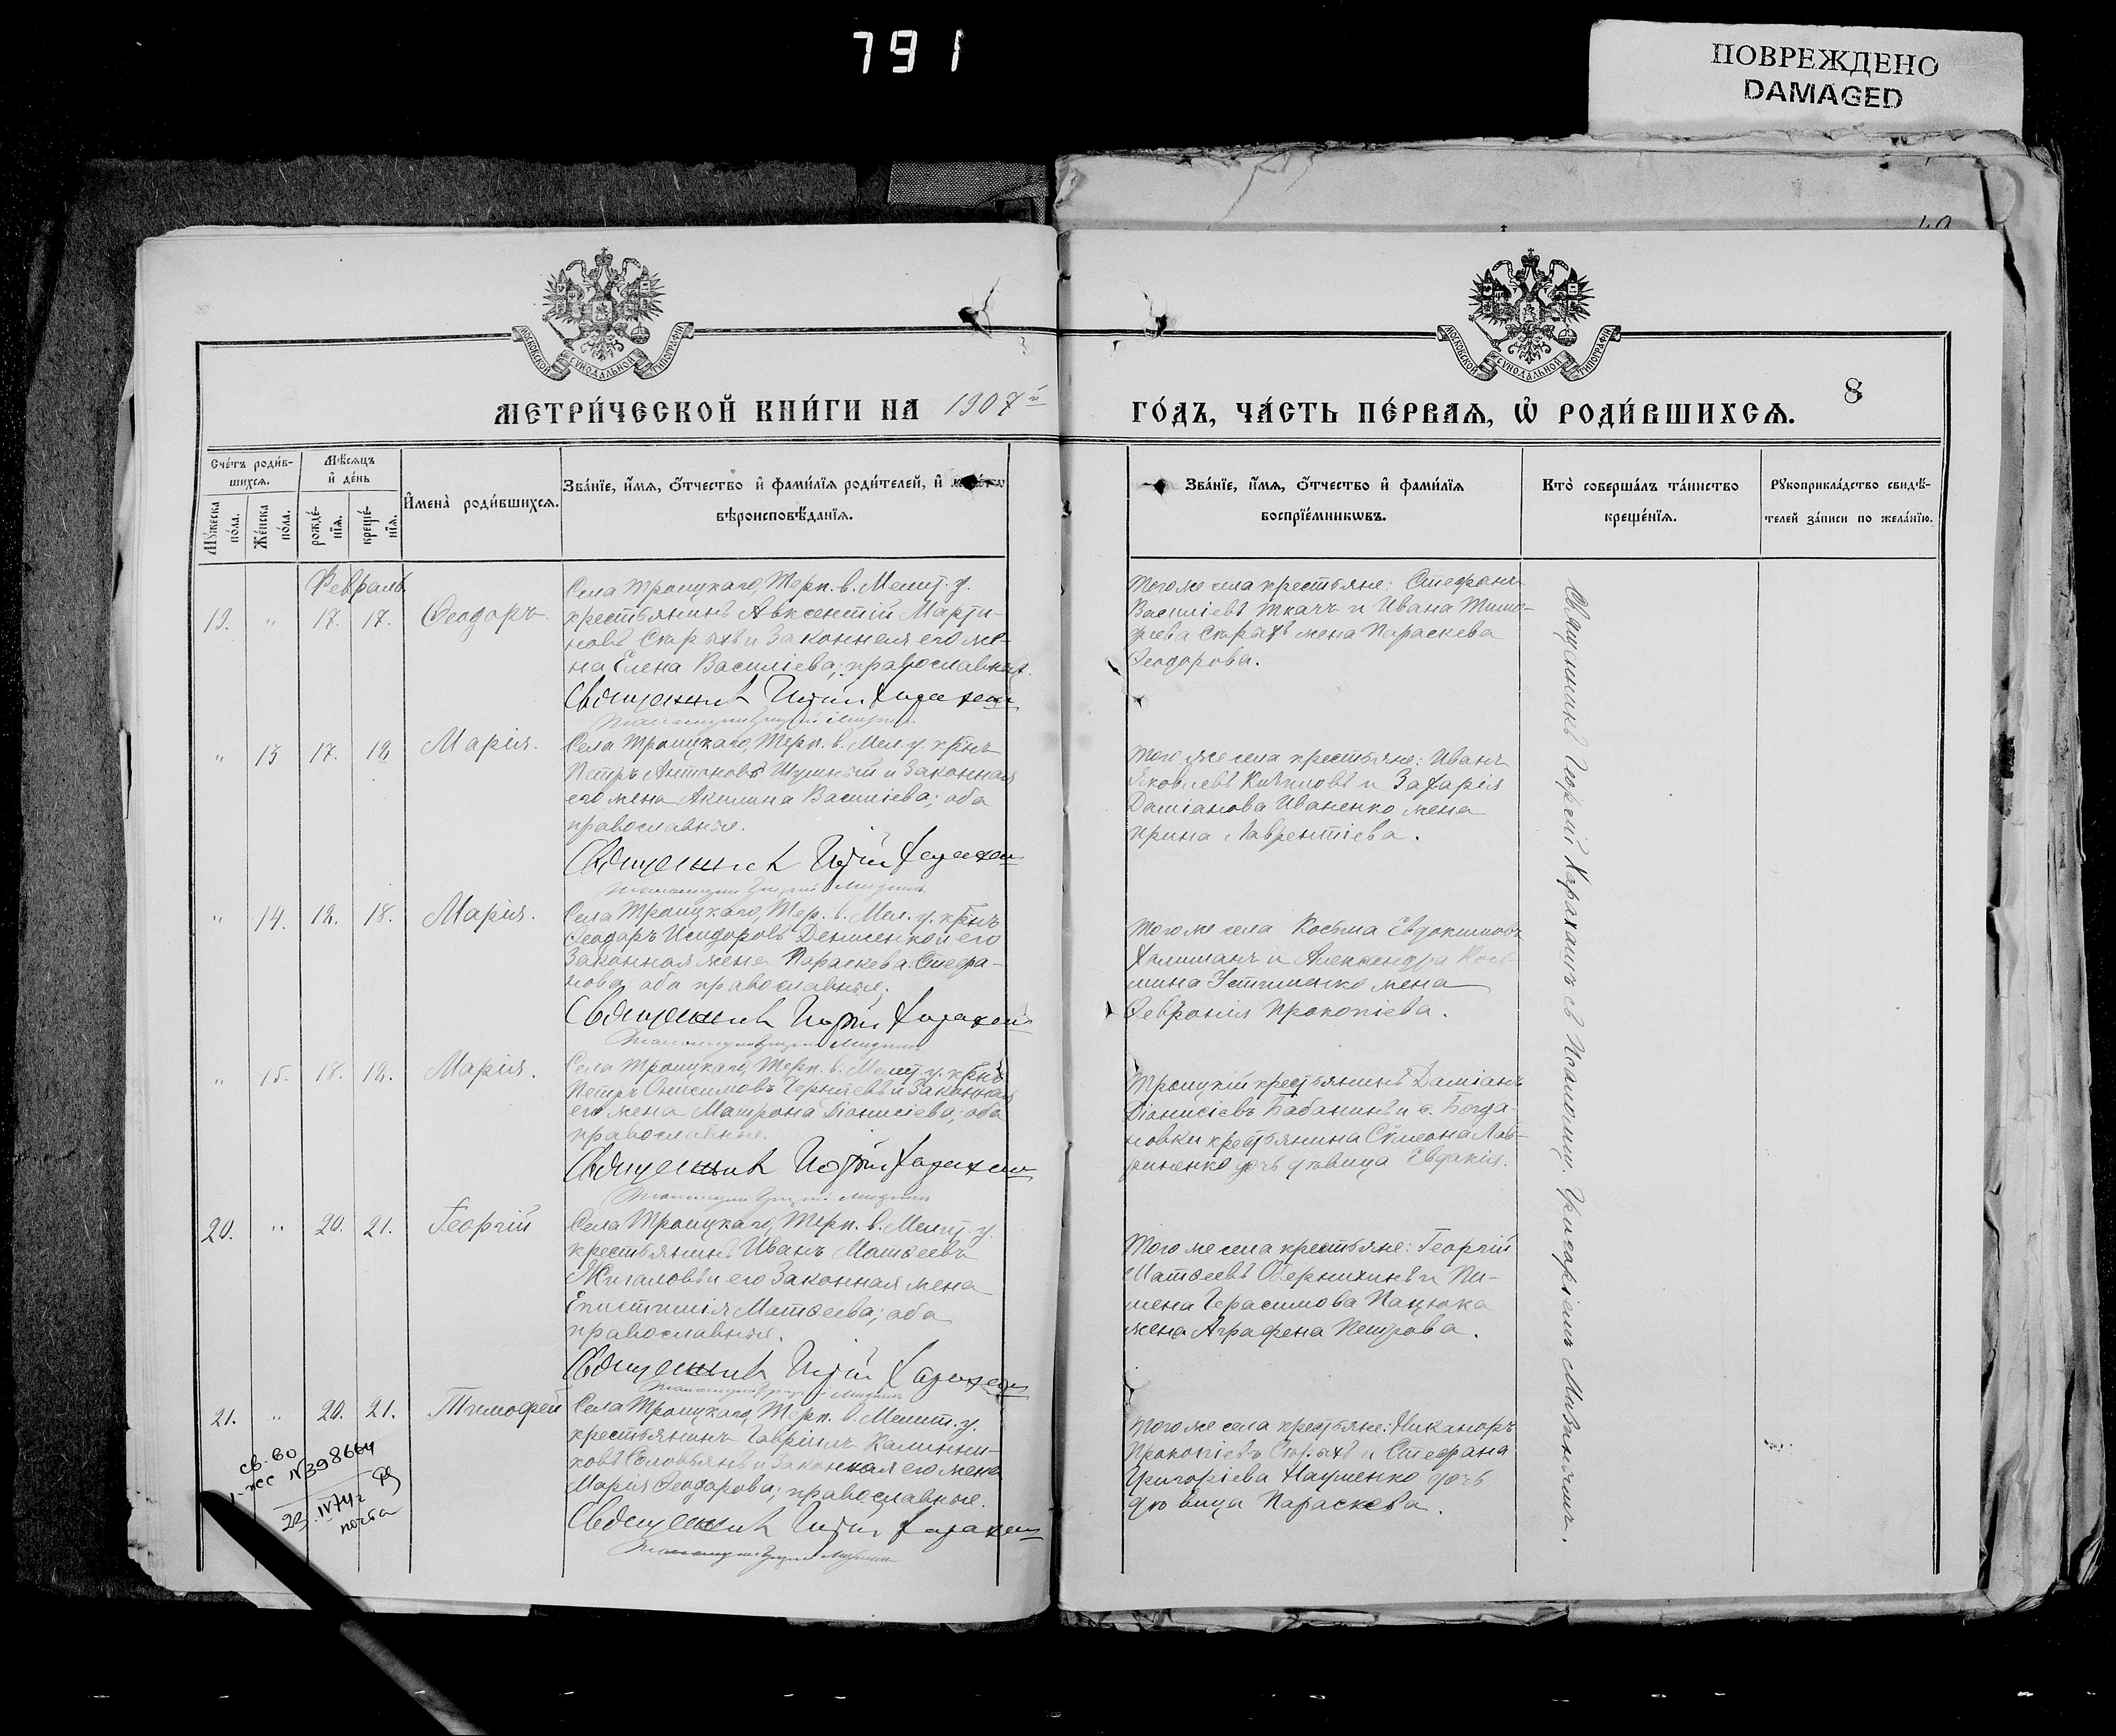 791
ПОВРЕЖДЕНО
DAMAGED
МОСКОВСКОЙ СѴНОДАЛЬНОЙ ТИПОГРАФІИ
МОСКОВСКОЙ СѴНОДАЛЬНОЙ ТИПОГРАФІИ
МЕТРИ́ЧЕСКОЙ КНИ́ГИ НА 1907й
ГО́ДЪ, ЧА́СТЬ ПЕ́РВАЯ, Ѿ РОДИ́ВШИХСЯ.
8
Сче́тъ роди́в-
шихся.
Мужеска пола.
Же́нска по́ла.
Мѣ́сяцъ
и де́нь
рожде́-
нїя.
креще́-
нїя.
И҆мена̀ роди́вшихся.
Зва́нїе, и҆́мя, ѻ҆́тчество и҆ фами́лїя роди́телей, и҆
вѣроисповѣ́данїя.
Зва́нїе, и҆́мя, ѻ҆́тчество и҆ фами́лїя
воспрїе́мникѡвъ.
Кто̀ соверша́лъ та́инство
креще́нїя.
Рꙋкоприкла́дство свидѣ́-
телей за́писи по жела́нїю.
Февраль.
19. " 17. 17. Ѳеодоръ.
Села Троицкаго, Терп. в. Мелит. у.
крестьянинъ Авксентій Марти-
новъ Скарыхъ и законная его же-
на Елена Василіева; православные.
Священникъ Георгій Харахашъ
Того же села крестьяне: Стефанъ
Василіевъ Ткачъ и Ивана Тимо-
фіева Скарыхъ жена Параскева
Ѳеодорова.
" 13 17. 18. Марія.
Села Троицкаго, Терп. в. Мел. у. кр̅нъ
Петръ Антоновъ Шумный и законная
его жена Акилина Василіева; оба
православные.
Священникъ Георгій Харахашъ
Того же села крестьяне: Иванъ
Яковлевъ и Захарія
Даміанова Иваненко жена
Ирина Лаврентіева.
" 14. 18. 18. Марія.
Села Троицкаго, Тер. в. Мел. у. кр̅нъ
Ѳеодоръ Исидоровъ Денисенко и его
законная жена Параскева Стефа-
нова; оба православные.
Священникъ Георгій Харахашъ
Того же села Косьма Евдокимовъ
Халиманъ и Александра Кось-
мина Устименко жена
Февронія Прокопіева.
" 15. 18. 18. Марія.
Села Троицкаго, Терп. в. Мелит. у. кр̅нъ
Петръ Онисимовъ Черняевъ и законная
его жена Матрона Діонисіева; оба
православные.
Священникъ Георгій Харахашъ
Троицкій крестьянинъ Даміанъ
Діонисіевъ Бабанинъ и с. Богда-
новки крестьянина Сѵмеона Лав-
риненко дочь дѣвица Евдокія.
20. " 20. 21. Георгій
Села Троицкаго, Терп. в. Мелит. у.
крестьянинъ Иванъ Матѳеевъ
Жигаловъ и его законная жена
Епистимія Матѳеева; оба
православные.
Священникъ Георгій Харахашъ
Того же села крестьяне: Георгій
Матѳеевъ Обернихинъ и Пи-
мена Герасимова Пацюка
жена Аграфена Петрова.
21. " 20. 21. Тимофей
Села Троицкаго, Терп. в. Мелит. у.
крестьянинъ Гавріилъ Калинни-
ковъ Соловьянъ и законная его жена
Марія Ѳеодорова; православные.
Священникъ Георгій Харахашъ
Того же села крестьяне: Никаноръ
Прокопіевъ Скарыхъ и Стефана
Григоріева Науменко дочь
дѣвица Параскева.
Священникъ Георгій Харахашъ съ Псаломщ. Григоріемъ
св-во
I-жс №398664
23.IV 74 г
почта